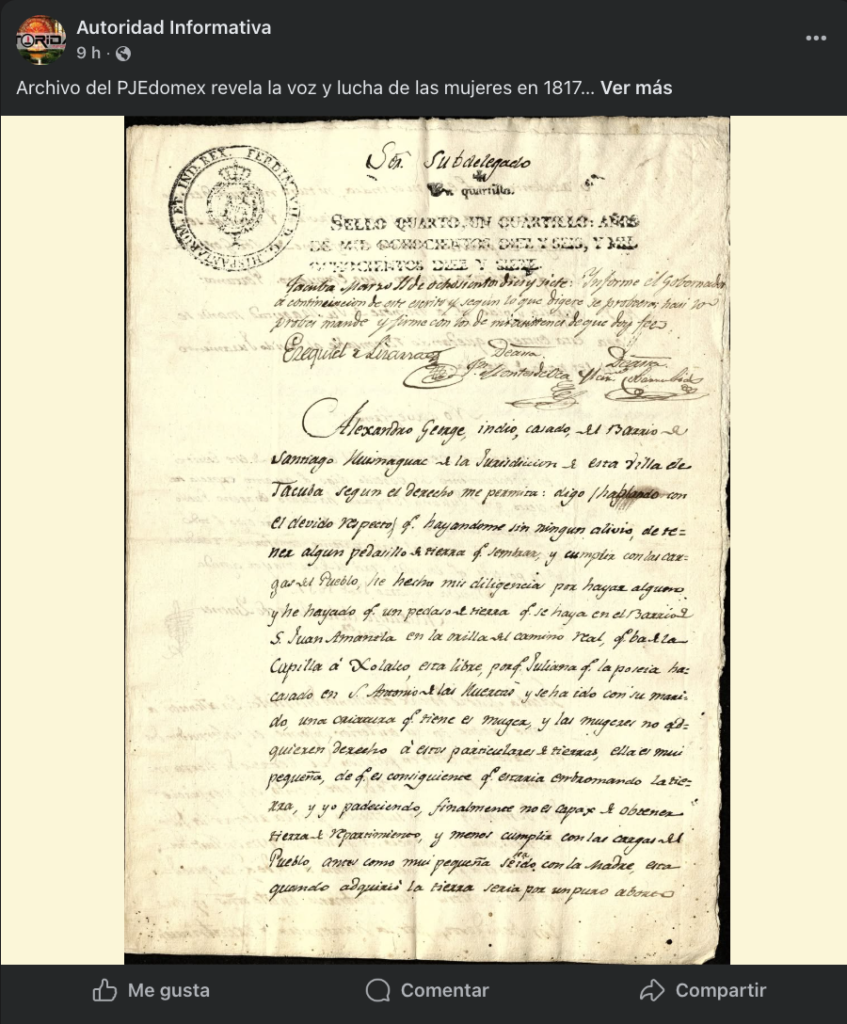 Autoridad Informativa
9 h ·
Archivo del PJEdomex revela la voz y lucha de las mujeres en 1817... Ver más
FERDIN. VII. D. G. HISPANIARUM ET IND. REX.
Sor. Subdelegado
Un quartillo.
SELLO QUARTO, UN QUARTILLO: AÑOS
DE MIL OCHOCIENTOS DIEZ Y SEIS, Y MIL
OCHOCIENTOS DIEZ Y SIETE.
Tacuba Marzo 11 de ochosientos dies y siete: Informe el Gobernador
a continuacion de este escrito y segun lo que digere se probeera: hasi lo
probei mande y firme con los de mi asistencia de que doy fee
Ezequiel
Deassa. Deassa.
Alexandro George, indio, casado, del Barrio de
Santiago Huinaguac de la Jurisdicion de esta Villa de
Tacuba segun el derecho me permita: digo (hablando con
el devido respecto) q.e hayandome sin ningun alivio, de te=
ner algun pedasillo de tierra q.e sembrar, y cumplir con las car-
gas del Pueblo, he hecho mis diligencia por hayar alguno
y he hayado q.e un pedaso de tierra q.e se haya en el Barrio de
S. Juan Amanela en la orilla del camino real, q.e ba de la
Capilla á Xolalco, esta libre, porq.e Juliana q.e la poseia ha:
casado en S. Antonio de las Huertas y se ha ido con su mari-
do, una criatura q.e tiene es muger, y las mugeres no ad=
quieren derecho á estos particulares de tierras, ella es mui
pequeña, de q.e es consiguiente q.e estaria embromando la tie=
rra, y yo padeciendo, finalmente no es capax de obtener
tierra de repartimiento, y menos cumplir con las cargas del
Pueblo, antes como mui pequeña se ido con la Madre, esta
quando adquirió la tierra seria por un puro
Me gusta
Comentar
Compartir